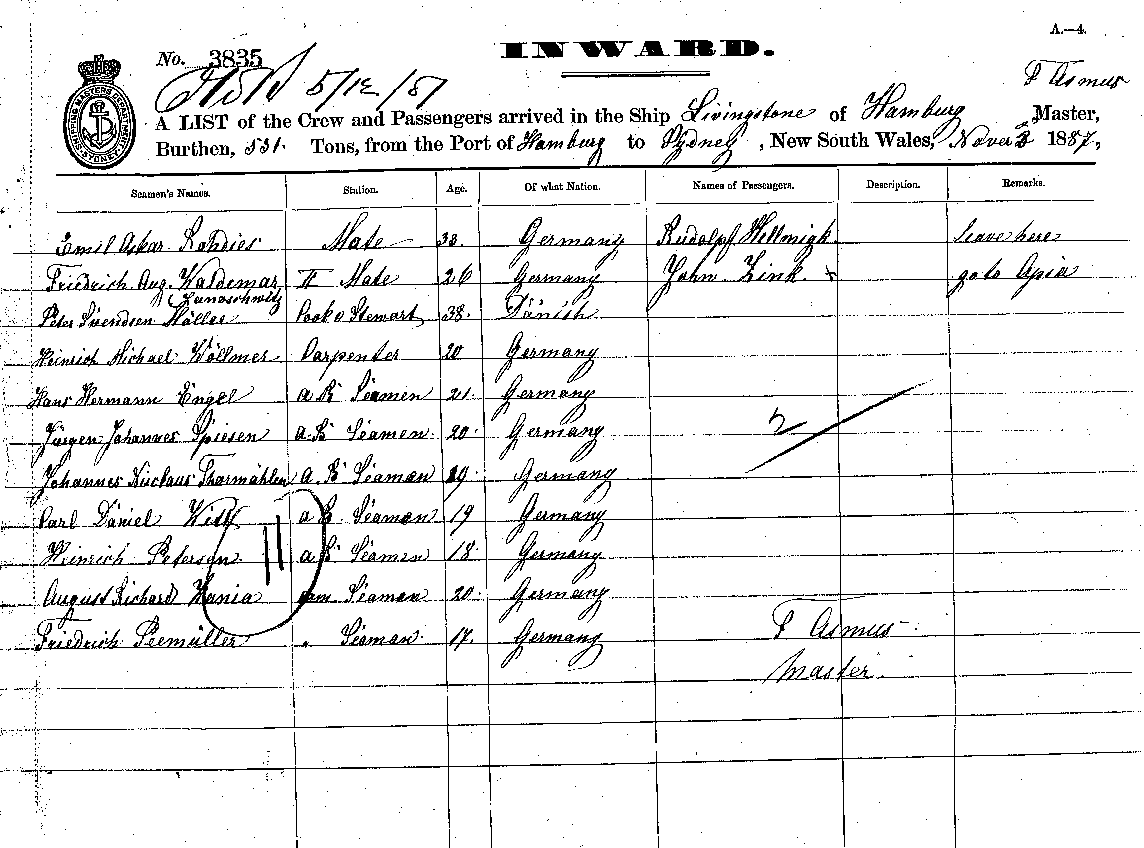 A.—4.
No. 3835
INWARD.
5/12/87
F Asmus
A LIST of the Crew and Passengers arrived in the Ship Livingstone of Hamburg , Master,
Burthen, 531. Tons, from the Port of Hamburg to Sydney , New South Wales, Nover 3 1887,
SHIPPING MASTERS DEPARTMENT SYDNEY
Seamen's Names. Station. Age. Of what Nation. Names of Passengers. Description. Remarks.
Emil Oskar Rohdies Mate 33. Germany Rudolf Hellmigk leave here
Friedrich Aug. Waldemar II Mate 26 Germany John Zink + go to Apia
Peter Svendsen Möller Cook & Stewart 38. Dänish
Heinrich Michael Wöllmer Carpenter 20 Germany
Hans Hermann Engel a B Seamen 21. Germany
Jürgen Johannes Spiesen a. B Seamen. 20 Germany 2
Johannes Nicolaus Tharmählen a. B Seaman 19. Germany
Carl Däniel Witt a B. Seaman 19 Germany
Heinrich Petersen a B Seamen 18. Germany
11
August Richard Hania Seaman 20. Germany
Friedrich Seemüller " Seaman. 17. Germany
F Asmus.
Master.